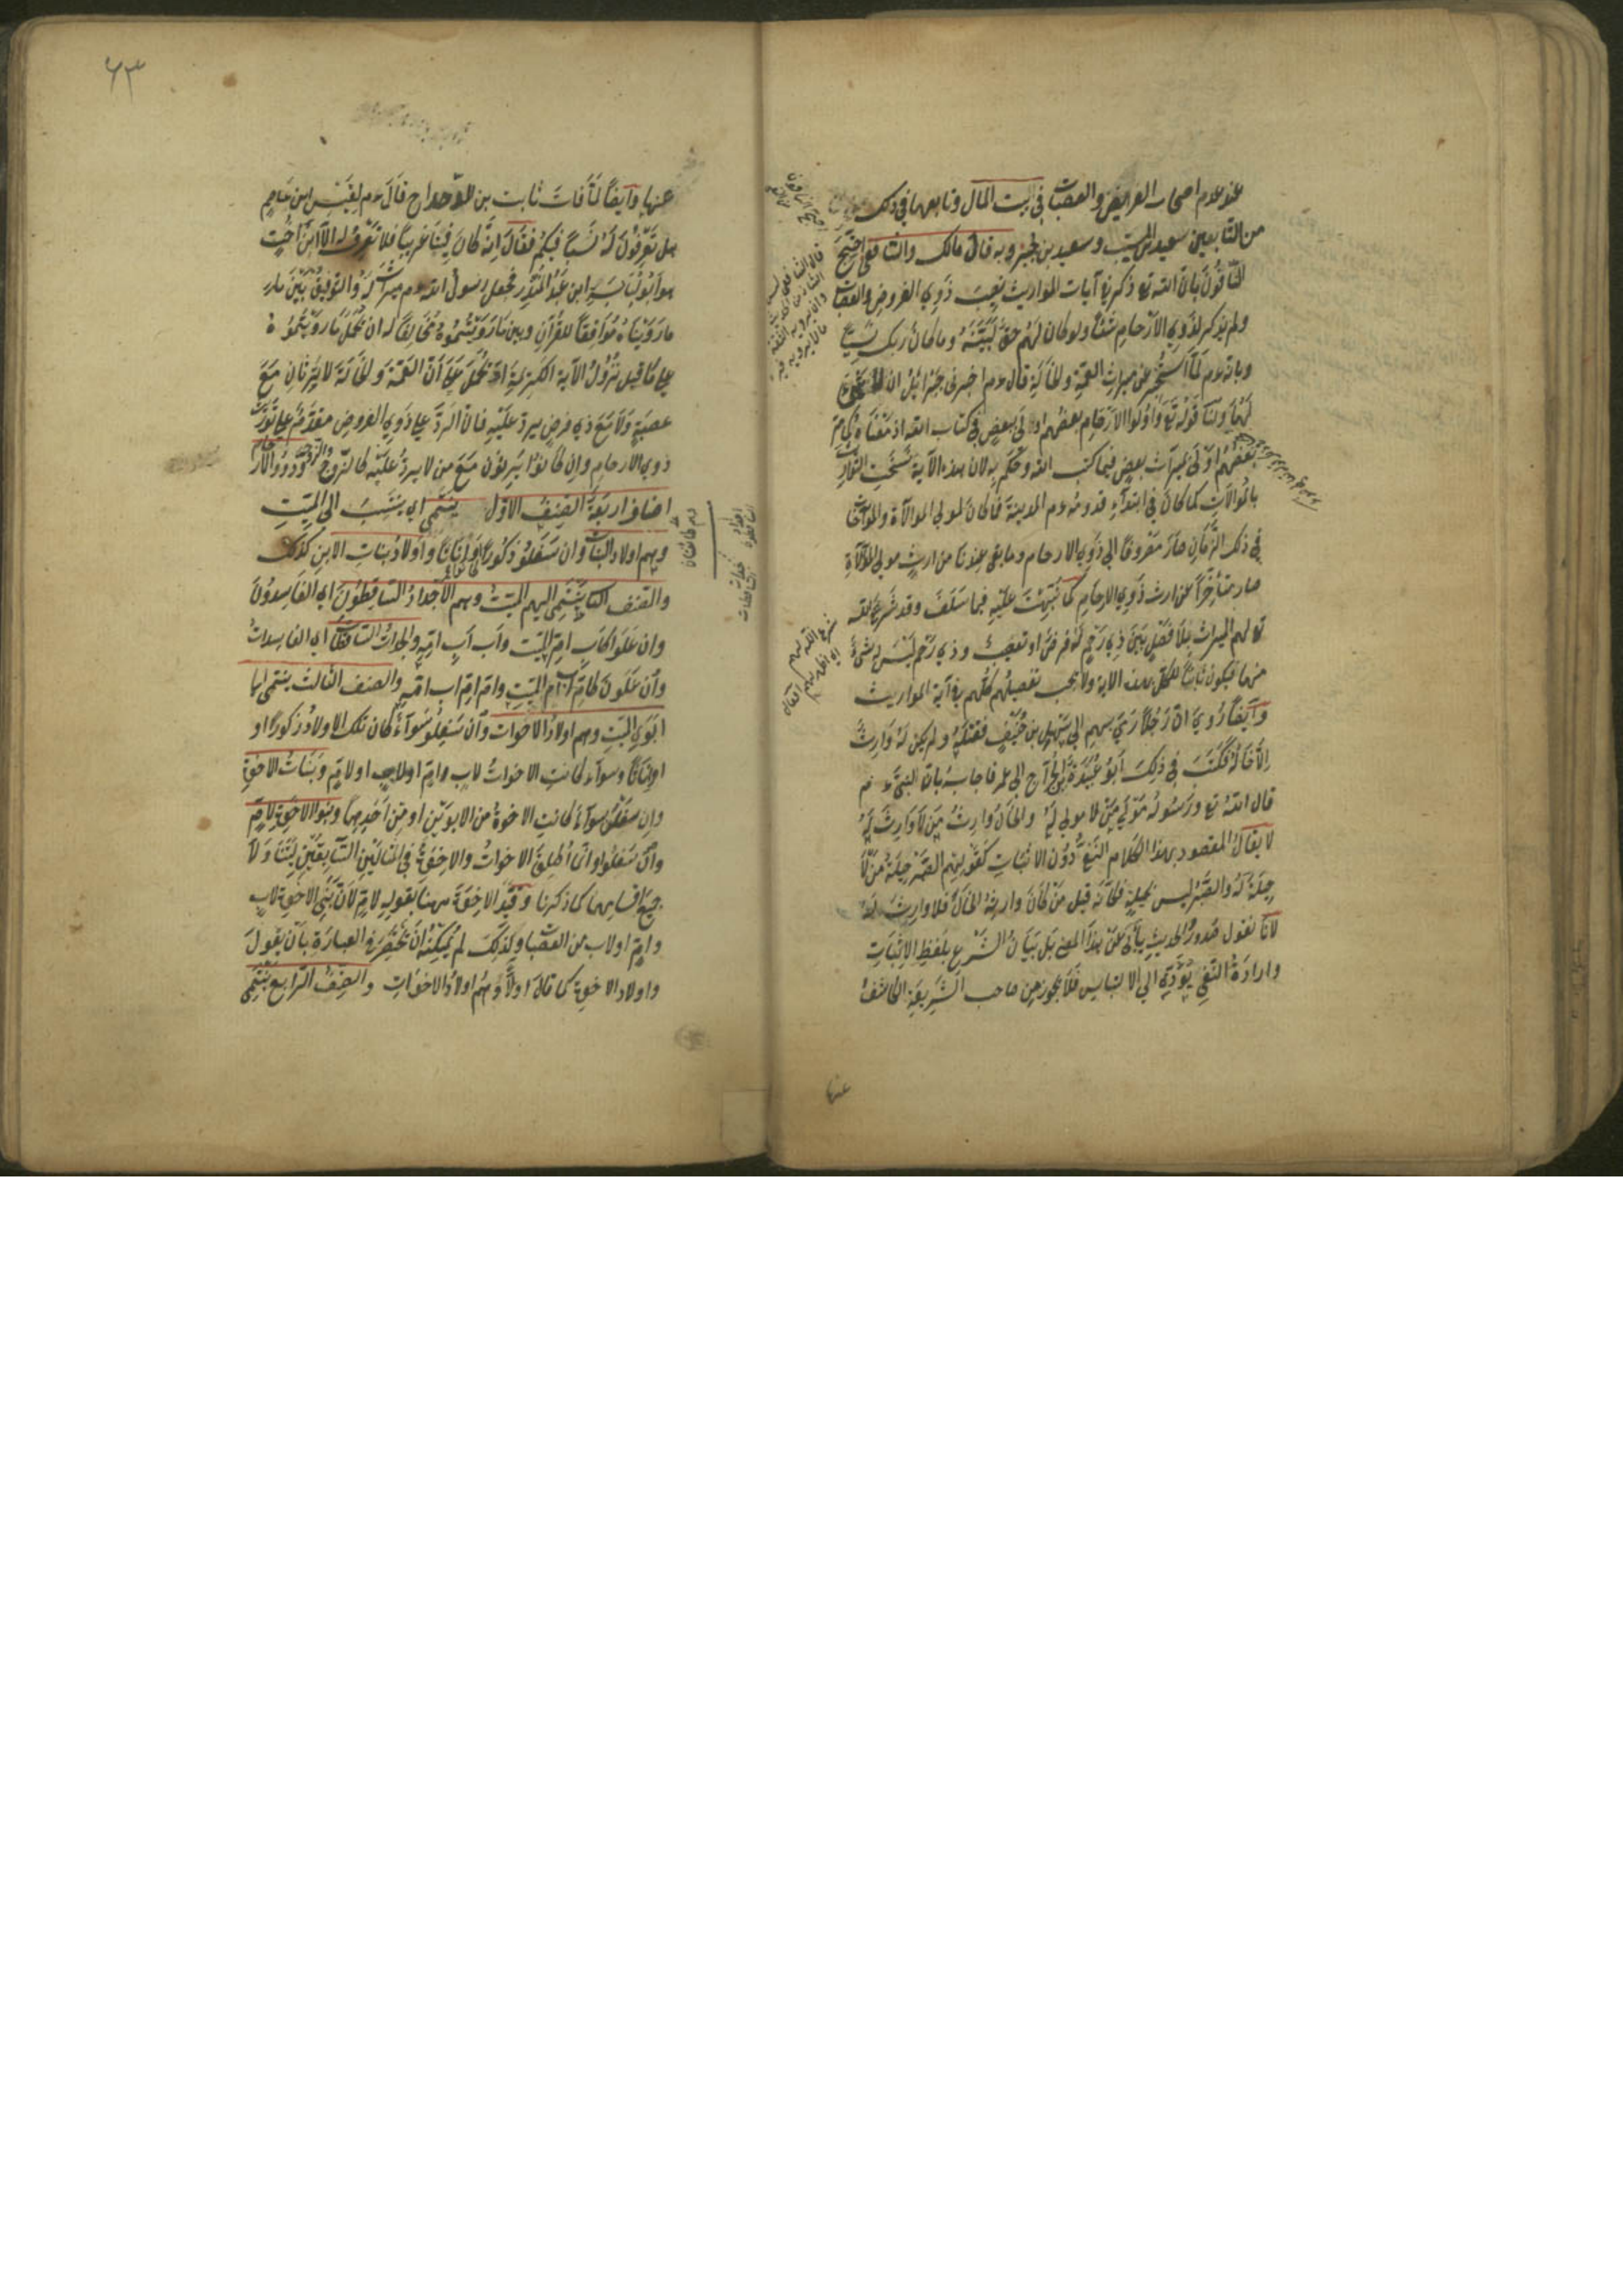 عند عدم اصحاب الفرايض والعصبات في بيت المال وتابعهما في ذلك
من التابعين سعيد بن المسيب وسعيد بن جبير وبه قال مالك والشافعي احتج
النافون بان الله تع ذكر في آيات المواريث نصيب ذوي الفروض والعصبات
ولم يذكر لذوي الارحام شيئا ولو كان لهم حق لبينه وما كان ربك نسيا
وبانه عم لما استخبر عن ميراث العمة والخالة قال عم اخبرني جبرائيل ان لا شئ
لهما ولنا قوله تع واولوا الارحام بعضهم اولى ببعض في كتاب الله اذ معناه كما مر
بعضهم اولى بميراث بعض فيما كتب الله وحكم به لان هذه الآية نسخت التوارث
بالموالات كما كان في ابتداء قدومه عم المدينة فما كان لمولى الموالاة والمواخاة
في ذلك الزمان صار مصروفا الى ذوي الارحام وما بقى عندنا من ارث مولى الموالاة
صار متأخرا عن ارث ذوي الارحام كما نبهت عليه فيما سلف وقد شرع الله
تع لهم الميراث بلا فصل بين ذي رحم له فرض او تعصيب وذي رحم ليس له شئ
منهما فيكون ثابتا للكل بهذه الاية ولا يجب تفصيلهم كلهم في آية المواريث
وايضا روي ان رجلا رمى بسهم الى سهل بن حنيف فقتله ولم يكن له وارث
الا خاله فكتب في ذلك ابو عبيدة بن الجراح الى عمر فاجابه بان النبي عم
قال الله تع ورسوله مولى من لا مولى له والخال وارث من لا وارث له
لا يقال المقصود بهذا الكلام النفي دون الاثبات كقولهم الصبر حيلة من لا
حيلة له والصبر ليس بحيلة فكانه قيل من كان وارثه الخال فلا وارث له
لانا نقول صدور الحديث يأبى عن هذا المعنى بل بيان الشرع بلفظ الاثبات
وارادة النفي يؤدي الى الالتباس فلا يجوز من صاحب الشريعة الكاشف
عنها
٦٣
عنها وايضا لما مات ثابت بن الدحداح قال عم لقيس ابن عاصم
هل تعرفون له نسبا فيكم فقال انه كان فينا غريبا فلا نعرف له الا ابن اخت
هو ابو لبابة ابن عبد المنذر فجعل رسول الله عم ميراثه له والتوفيق بين
ما رويناه موافقا للقرآن وبين ما رويتموه مخالفا له ان يحمل ما رويتموه
على ما قبل نزول الآية الكريمة او يحمل على ان العمة والخالة لا يرثان مع
عصبة ولا مع ذي فرض يرد عليه فان الرد على ذوي الفروض مقدم على توريث
ذوي الارحام وان كانوا يرثون مع من لا يرد عليه كالزوج والزوجة وذوو الارحام
اصناف اربعة الصنف الاول ينتمى اي ينتسب الى الميت
وهم اولاد البنات وان سفلوا ذكورا كانوا او اناثا واولاد بنات الابن كذلك
والصنف الثاني ينتمى اليهم الميت وهم الاجداد الساقطون اي الفاسدون
وان علوا كاب ام الميت واب اب امه والجدات الساقطات اي الفاسدات
وان علون كام اب ام الميت وام ام اب امه والصنف الثالث ينتمى الى
ابوي الميت وهم اولاد الاخوات وان سفلوا سواء كان تلك الاولاد ذكورا او
اناثا وسواء كانت الاخوات لاب وام او لاب او لام وبنات الاخوة
وان سفلن سواء كانت الاخوة من الابوين او من احدهما وبنو الاخوة لام
وان سفلوا وانما اطلق الاخوات والاخوة في المثالين السابقين ليتناولا
جميع اقسامهما كما ذكرنا وقيد الاخوة ههنا بقوله لام لان بني الاخوة لاب
وام او لاب من العصبات ولذلك لم يمكنه ان يختصر في العبارة بان يقول
واولاد الاخوة كما قال اولا وهم اولاد الاخوات والصنف الرابع ينتمى